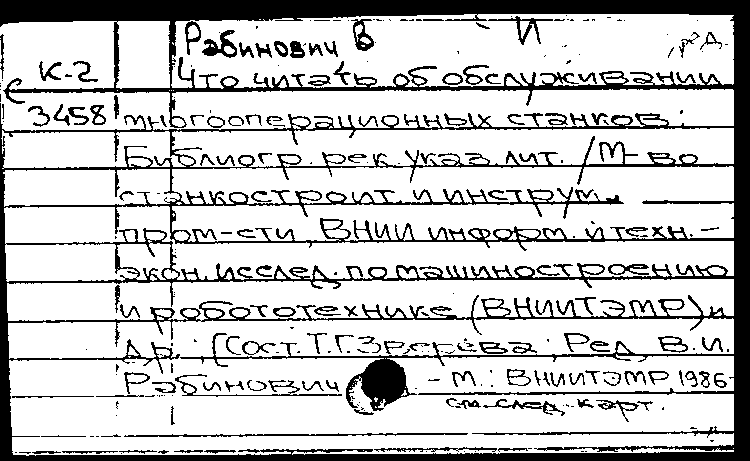 Рабинович В И
, ред.
К-2
3458
Что читать об обслуживании
многооперационных станков:
Библиогр. рек. указ. лит. / М-во
станкостроит. и инструм.
пром-сти, ВНИИ информ. и техн.-
экон. исслед. по машиностроению
и робототехнике (ВНИИТЭМР) и
др.; [Сост. Т.Г. Зверева; Ред. В.И.
Рабинович]. - М.: ВНИИТЭМР, 1986-
см. след. карт.